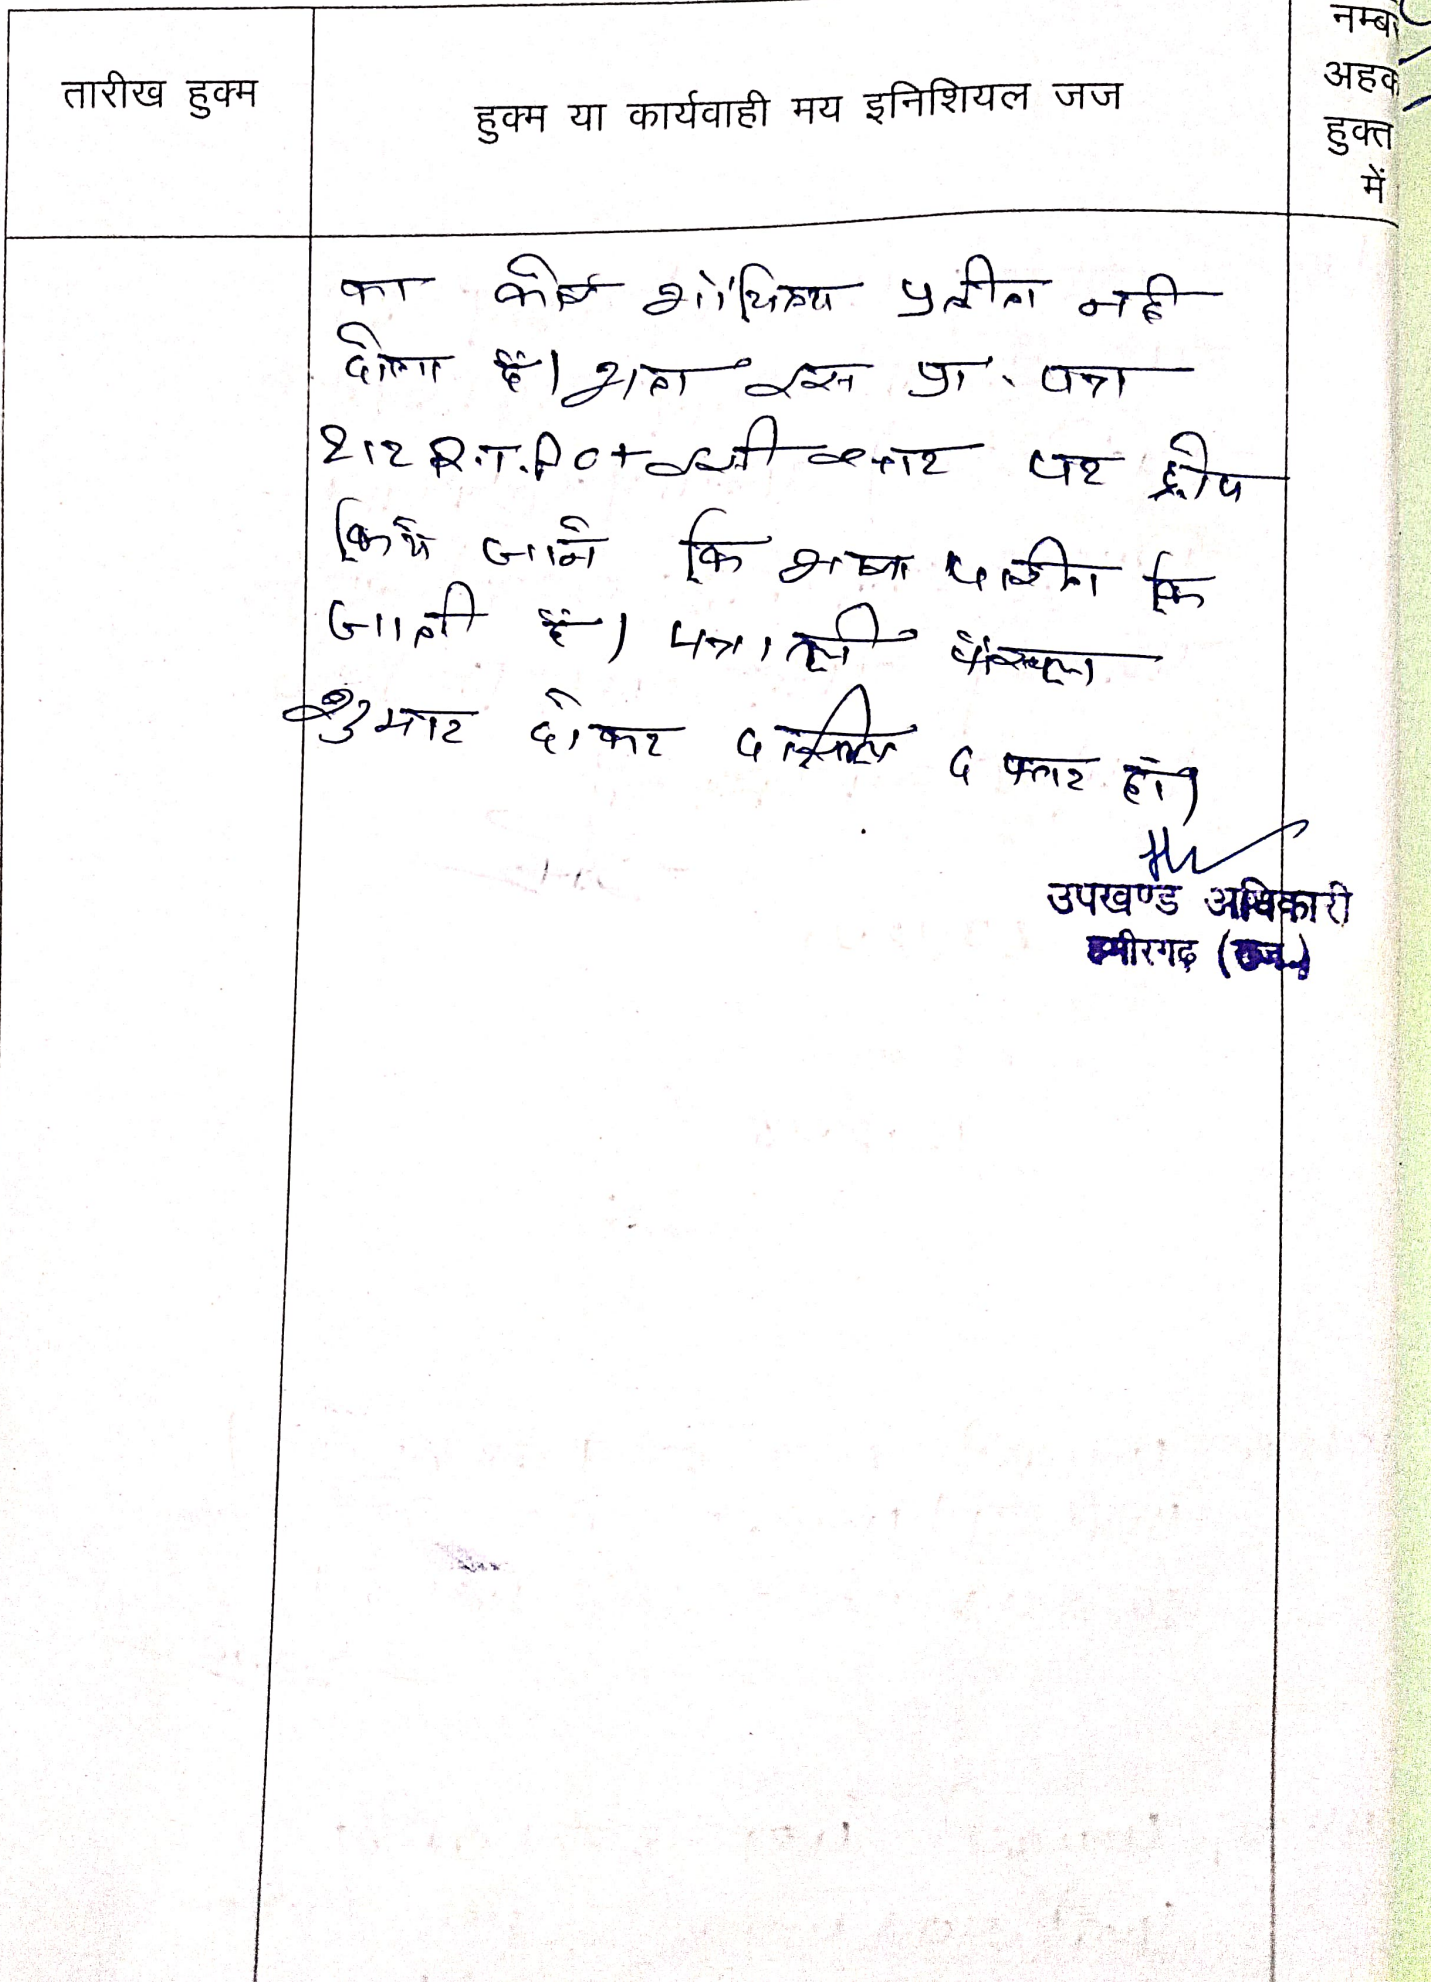 नम्ब
अहक
तारीख हुक्म
हुक्म या कार्यवाही मय इनिशियल जज
हुक्त
में
का कोई औचित्य प्रतीत नही
होता है। अतः इस प्रा. पत्र
212 R.T.A स्वीकार कर ड्रोप
किये जाने कि आज्ञा पारीत कि
जाती है। पत्रावली फैसल
शुमार होकर दाखिल दफ्तर हो।
उपखण्ड अधिकारी
(राज.)